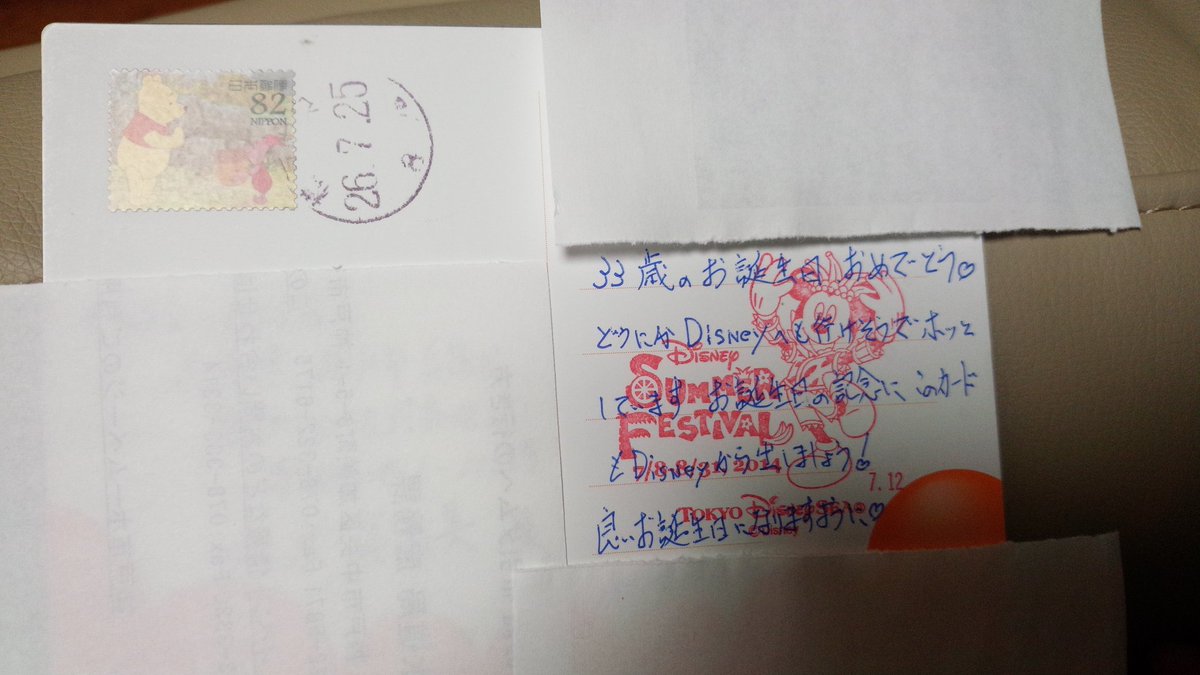 日本郵便
82
NIPPON
26.7.25
33歳のお誕生日おめでどう♡
どうにかDisneyへも行けそうでホッと
しています お誕生日の記念に このカード
もDisneyから出しましょう!♡
7.12
良いお誕生日になりますように♡
Disney
SUMMER
FESTIVAL
7/8-8/31 2014
TOKYO DisneySEA
©Disney